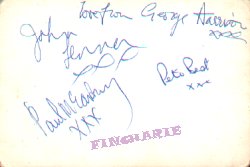 love from George Harrison
xxx
John
Lennon
xxx
Pete Best
xxx
Paul McCartney
xxx
FINGHARIE